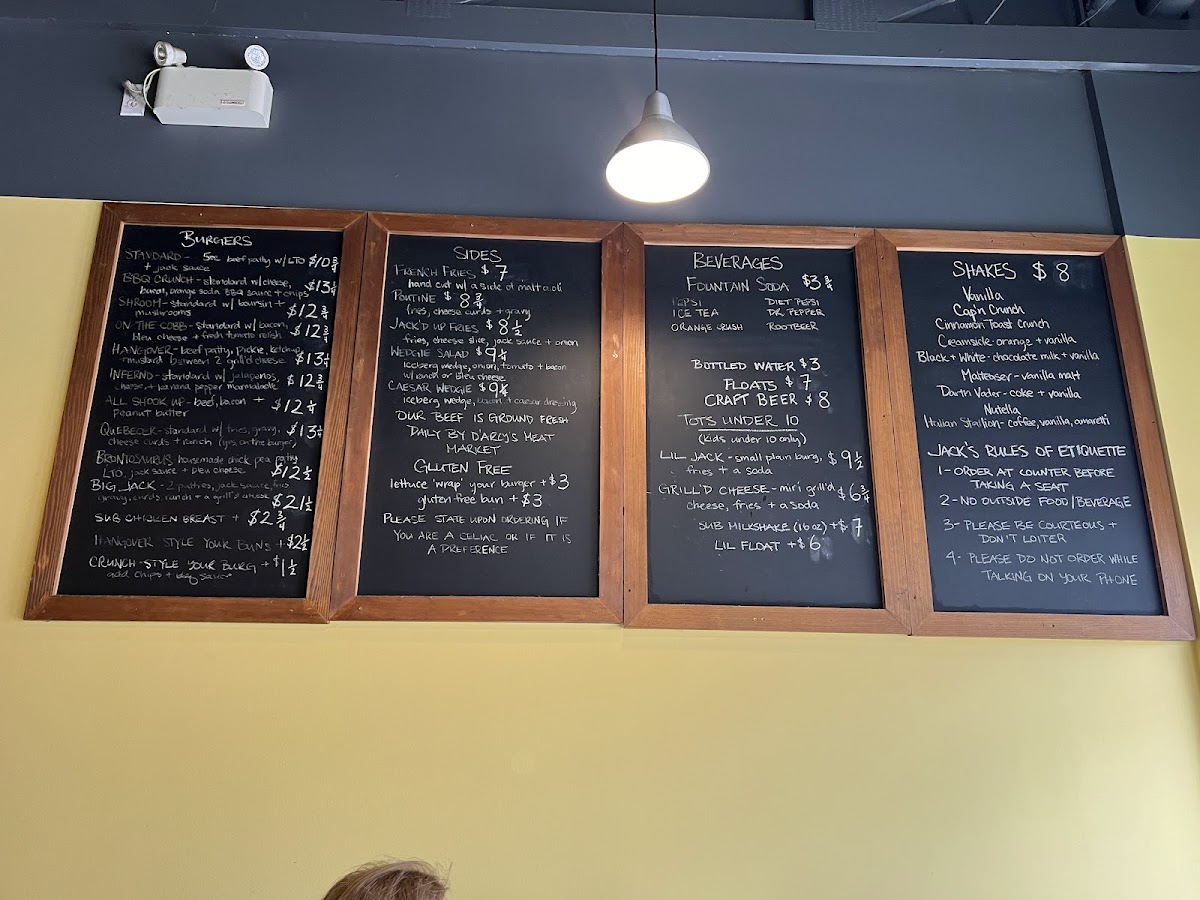 BURGERS
STANDARD - 5oz beef patty w/ LTO $10 3/4
+ jack sauce
BBQ CRUNCH - standard w/ cheese, $13 1/4
bacon, orange soda BBQ sauce + chips
SHROOM - standard w/ boursin + $12 3/4
mushrooms
ON THE COBB - standard w/ bacon, $12 3/4
bleu cheese + fresh tomato relish
HANGOVER - beef patty, pickle, ketchup, $13 1/4
mustard between 2 grill'd cheese
INFERNO - standard w/ jalapenos, $12 3/4
cheese, + banana pepper marmalade
ALL SHOOK UP - beef, bacon + $12 1/4
Peanut butter
QUEBECER - standard w/ fries, gravy, $13 1/4
cheese curds + ranch (yes, on the burger)
BRONTOSAURUS homemade chick pea patty
LTO, jack sauce + bleu cheese $12 1/2
BIG JACK - 2 patties, jack sauce, fries
gravy, curds, ranch + a grill'd cheese $21 1/2
SUB CHICKEN BREAST + $2 3/4
HANGOVER STYLE YOUR BUNS + $2 1/2
CRUNCH-STYLE YOUR BURG + $1 1/2
add chips + bbq sauce
SIDES
FRENCH FRIES $7
hand cut w/ a side of malt aoli
POUTINE $8 3/4
fries, cheese curds + gravy
JACK'D UP FRIES $8 1/2
fries, cheese slice, jack sauce + onion
WEDGIE SALAD $9 1/4
Iceberg wedge, onion, tomato + bacon
w/ ranch or bleu cheese
CAESAR WEDGIE $9 1/4
iceberg wedge, bacon + caesar dressing
OUR BEEF IS GROUND FRESH
DAILY BY D'ARCY'S MEAT
MARKET
GLUTEN FREE
lettuce 'wrap' your burger + $3
gluten-free bun + $3
PLEASE STATE UPON ORDERING IF
YOU ARE A CELIAC OR IF IT IS
A PREFERENCE
BEVERAGES
FOUNTAIN SODA $3 3/4
PEPSI DIET PEPSI
ICE TEA DR. PEPPER
ORANGE CRUSH ROOTBEER
BOTTLED WATER $3
FLOATS $7
CRAFT BEER $8
TOTS UNDER 10
(kids under 10 only)
LIL JACK - small plain burg, $9 1/2
fries + a soda
GRILL'D CHEESE - mini grill'd $6 3/4
cheese, fries + a soda
SUB MILKSHAKE (16oz) +$7
LIL FLOAT +$6
SHAKES $8
Vanilla
Cap'n Crunch
Cinnamon Toast Crunch
Creamsicle - orange + vanilla
Black + White - chocolate milk + vanilla
Malteaser - vanilla malt
Darth Vader - coke + vanilla
Nutella
Italian Stallion - coffee, vanilla, amaretti
JACK'S RULES OF ETIQUETTE
1 - ORDER AT COUNTER BEFORE
TAKING A SEAT
2 - NO OUTSIDE FOOD/BEVERAGE
3 - PLEASE BE COURTEOUS +
DON'T LOITER
4 - PLEASE DO NOT ORDER WHILE
TALKING ON YOUR PHONE